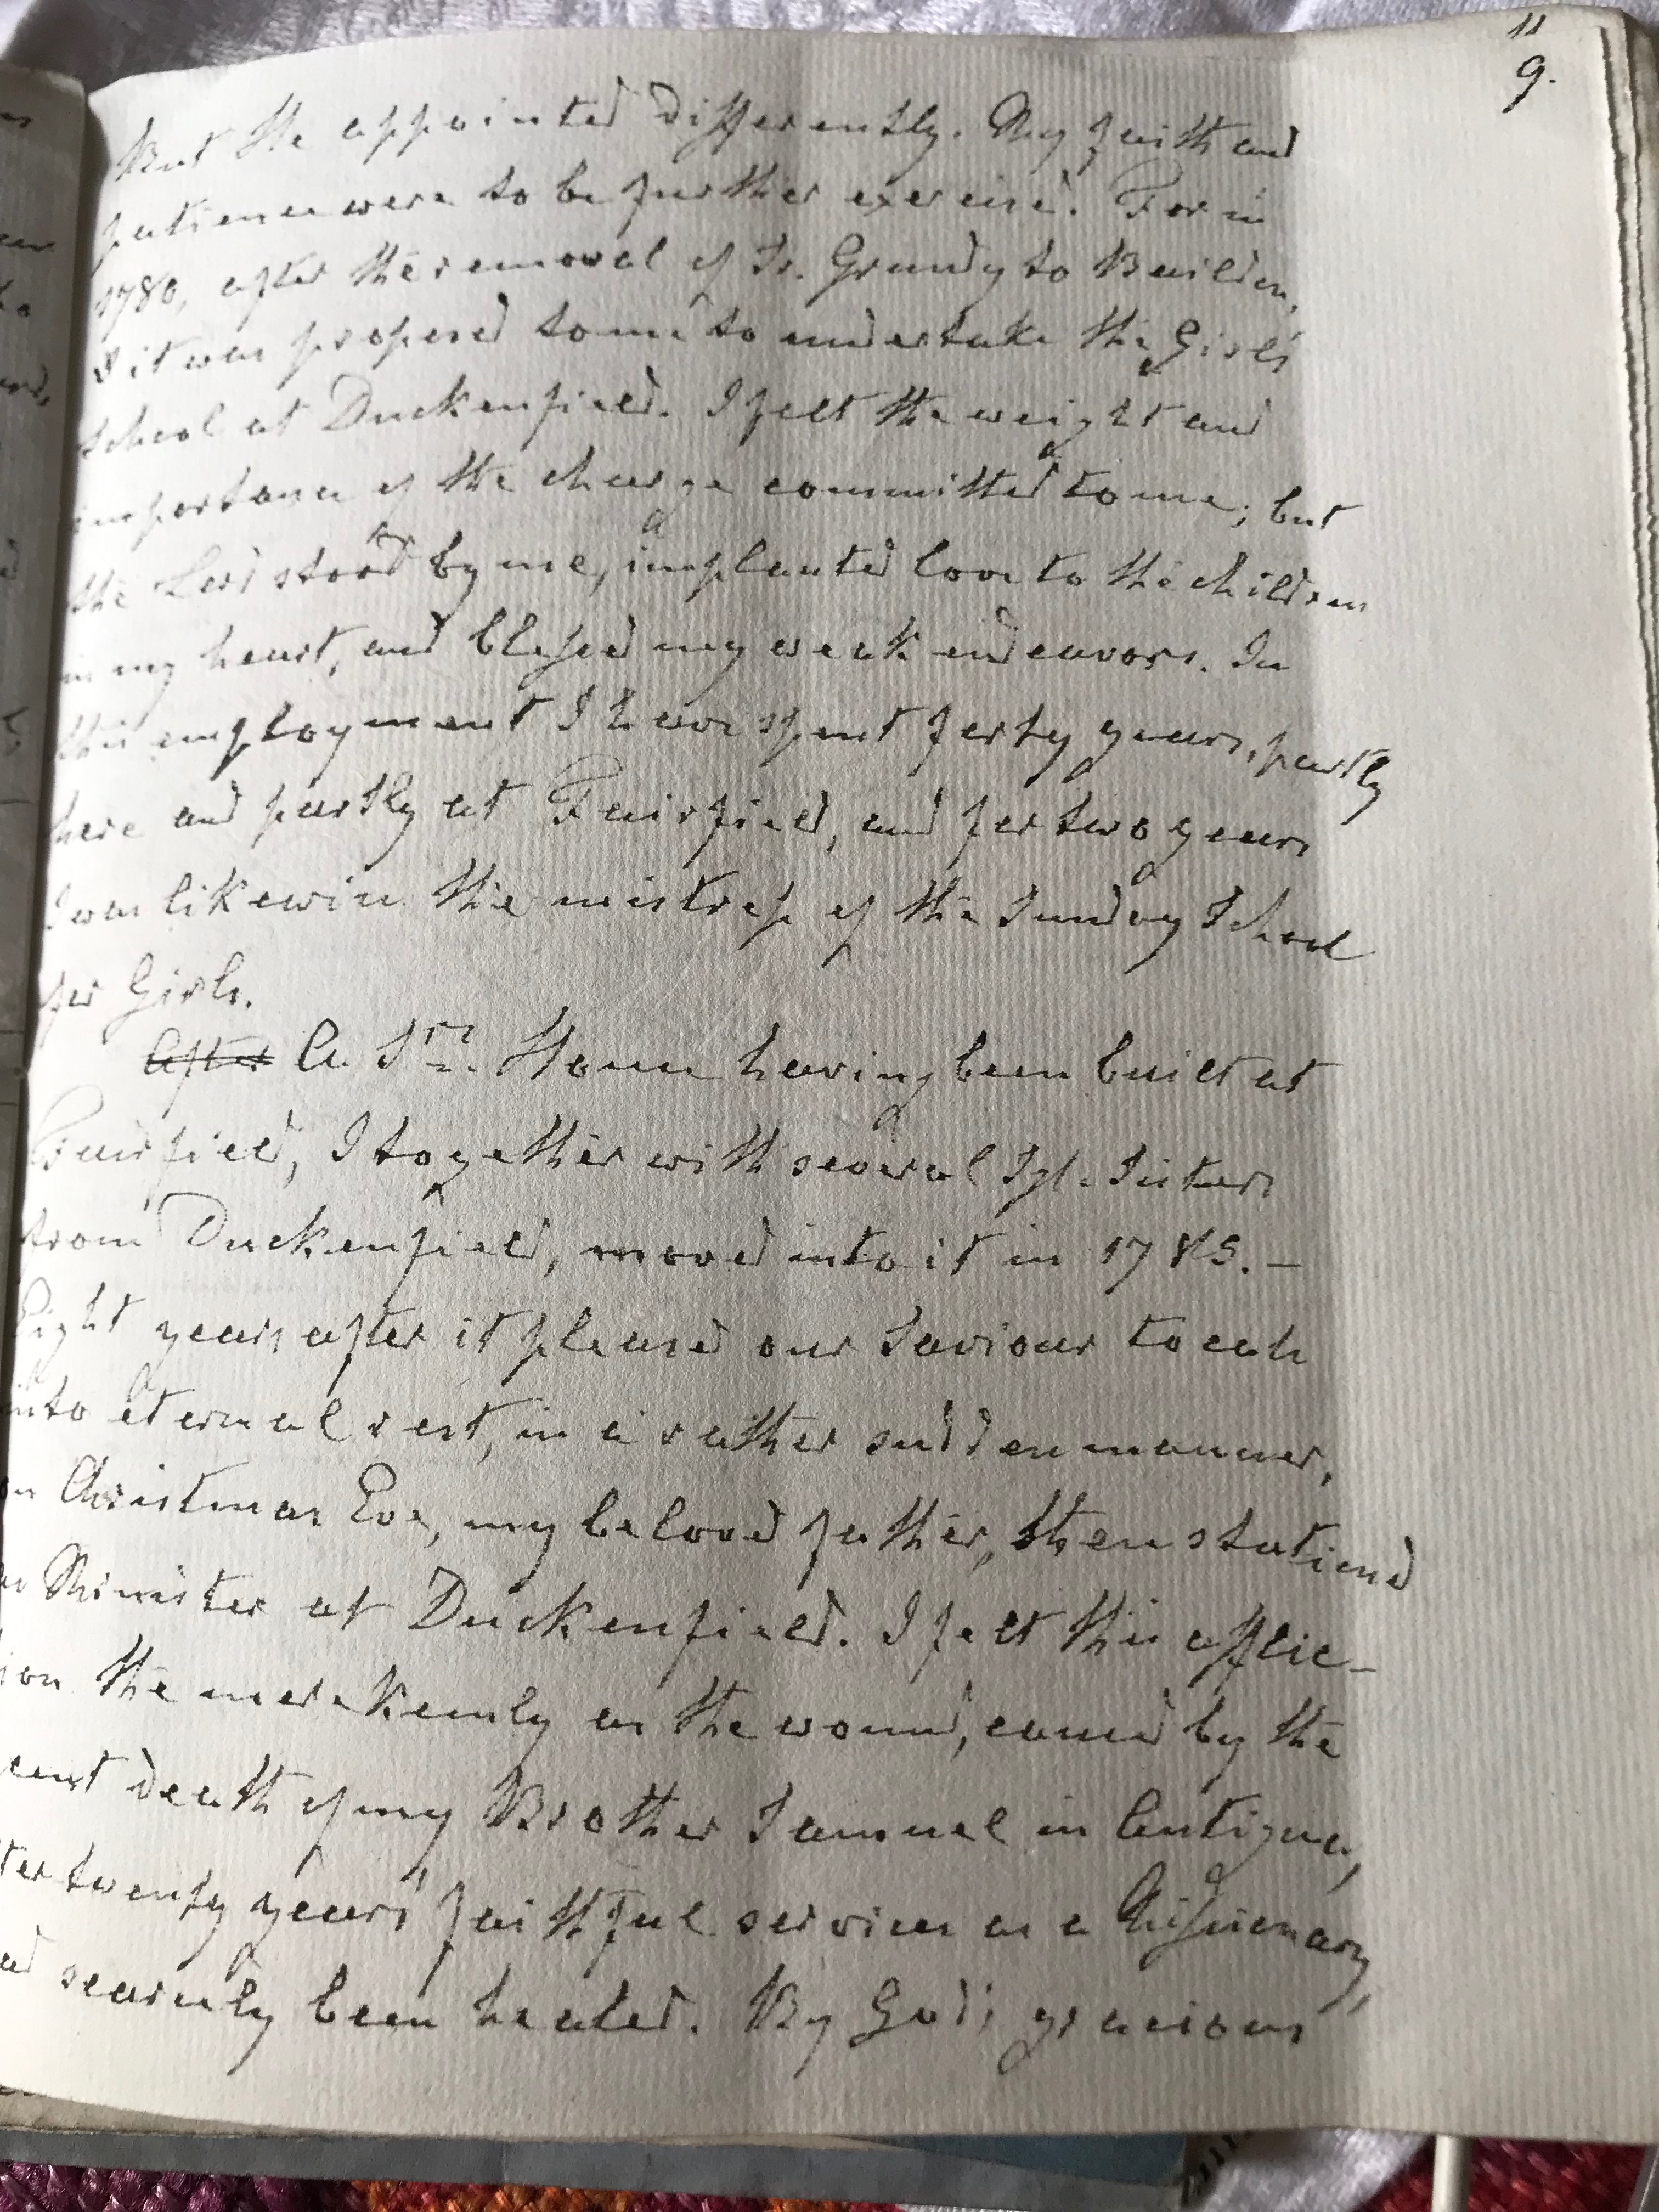 11
9.
But He appointed differently. My faith and
patience were to be further exercised. For in
1780, after the removal of Sr. Grundy to Buildon,
it was proposed to me to undertake the Girls'
School at Duckenfield. I felt the weight and
importance of the charge committed to me; but
the Lord stood by me, implanted love to the children
in my heart, and blessed my weak endeavors. In
this employment I have spent forty years, partly
here and partly at Fairfield, and for two years
I was likewise the mistress of the Sunday School
for Girls.
After A Srs. House having been built at
Fairfield, I together with several Sgl. Sisters
from Duckenfield, moved into it in 1785. —
Eight years after it pleased our Saviour to call
into eternal rest, in a rather sudden manner,
on Christmas Eve, my beloved father, then stationed
as Minister at Duckenfield. I felt this afflic-
ion the more keenly as the wound, caused by the
cent death of my Brother Samuel in Antigua,
ter twenty years' faithful services as a Missionary,
ad scarcely been healed. By God's gracious